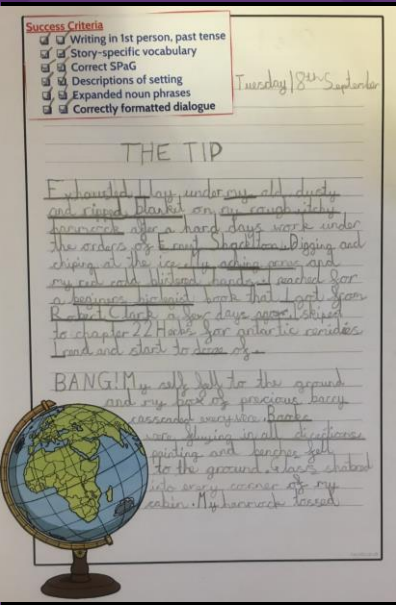 Success Criteria
Writing in 1st person, past tense
Story-specific vocabulary
Correct SPaG
Descriptions of setting
Expanded noun phrases
Correctly formatted dialogue
Tuesday 18th September
THE TIP
Exhausted I lay under my old dusty
and ripped blanket on my rough itchy
hammock after a hard days work under
the orders of Ernest Shackleton. Digging and
chiping at the ice. My aching arms and
my red cold blistered hands I reached for
a beginers biologist book that I got from
Robert Clark a few days I skiped
to chapter 22 Herbs for antartic remidies
I read and start to of
BANG! My self fell to the ground
and my box of precious
cascaded everywere. Books
were flying in all directions
painting and benches fell
to the ground. Glass
into every corner of my
cabin. My hammock tossed